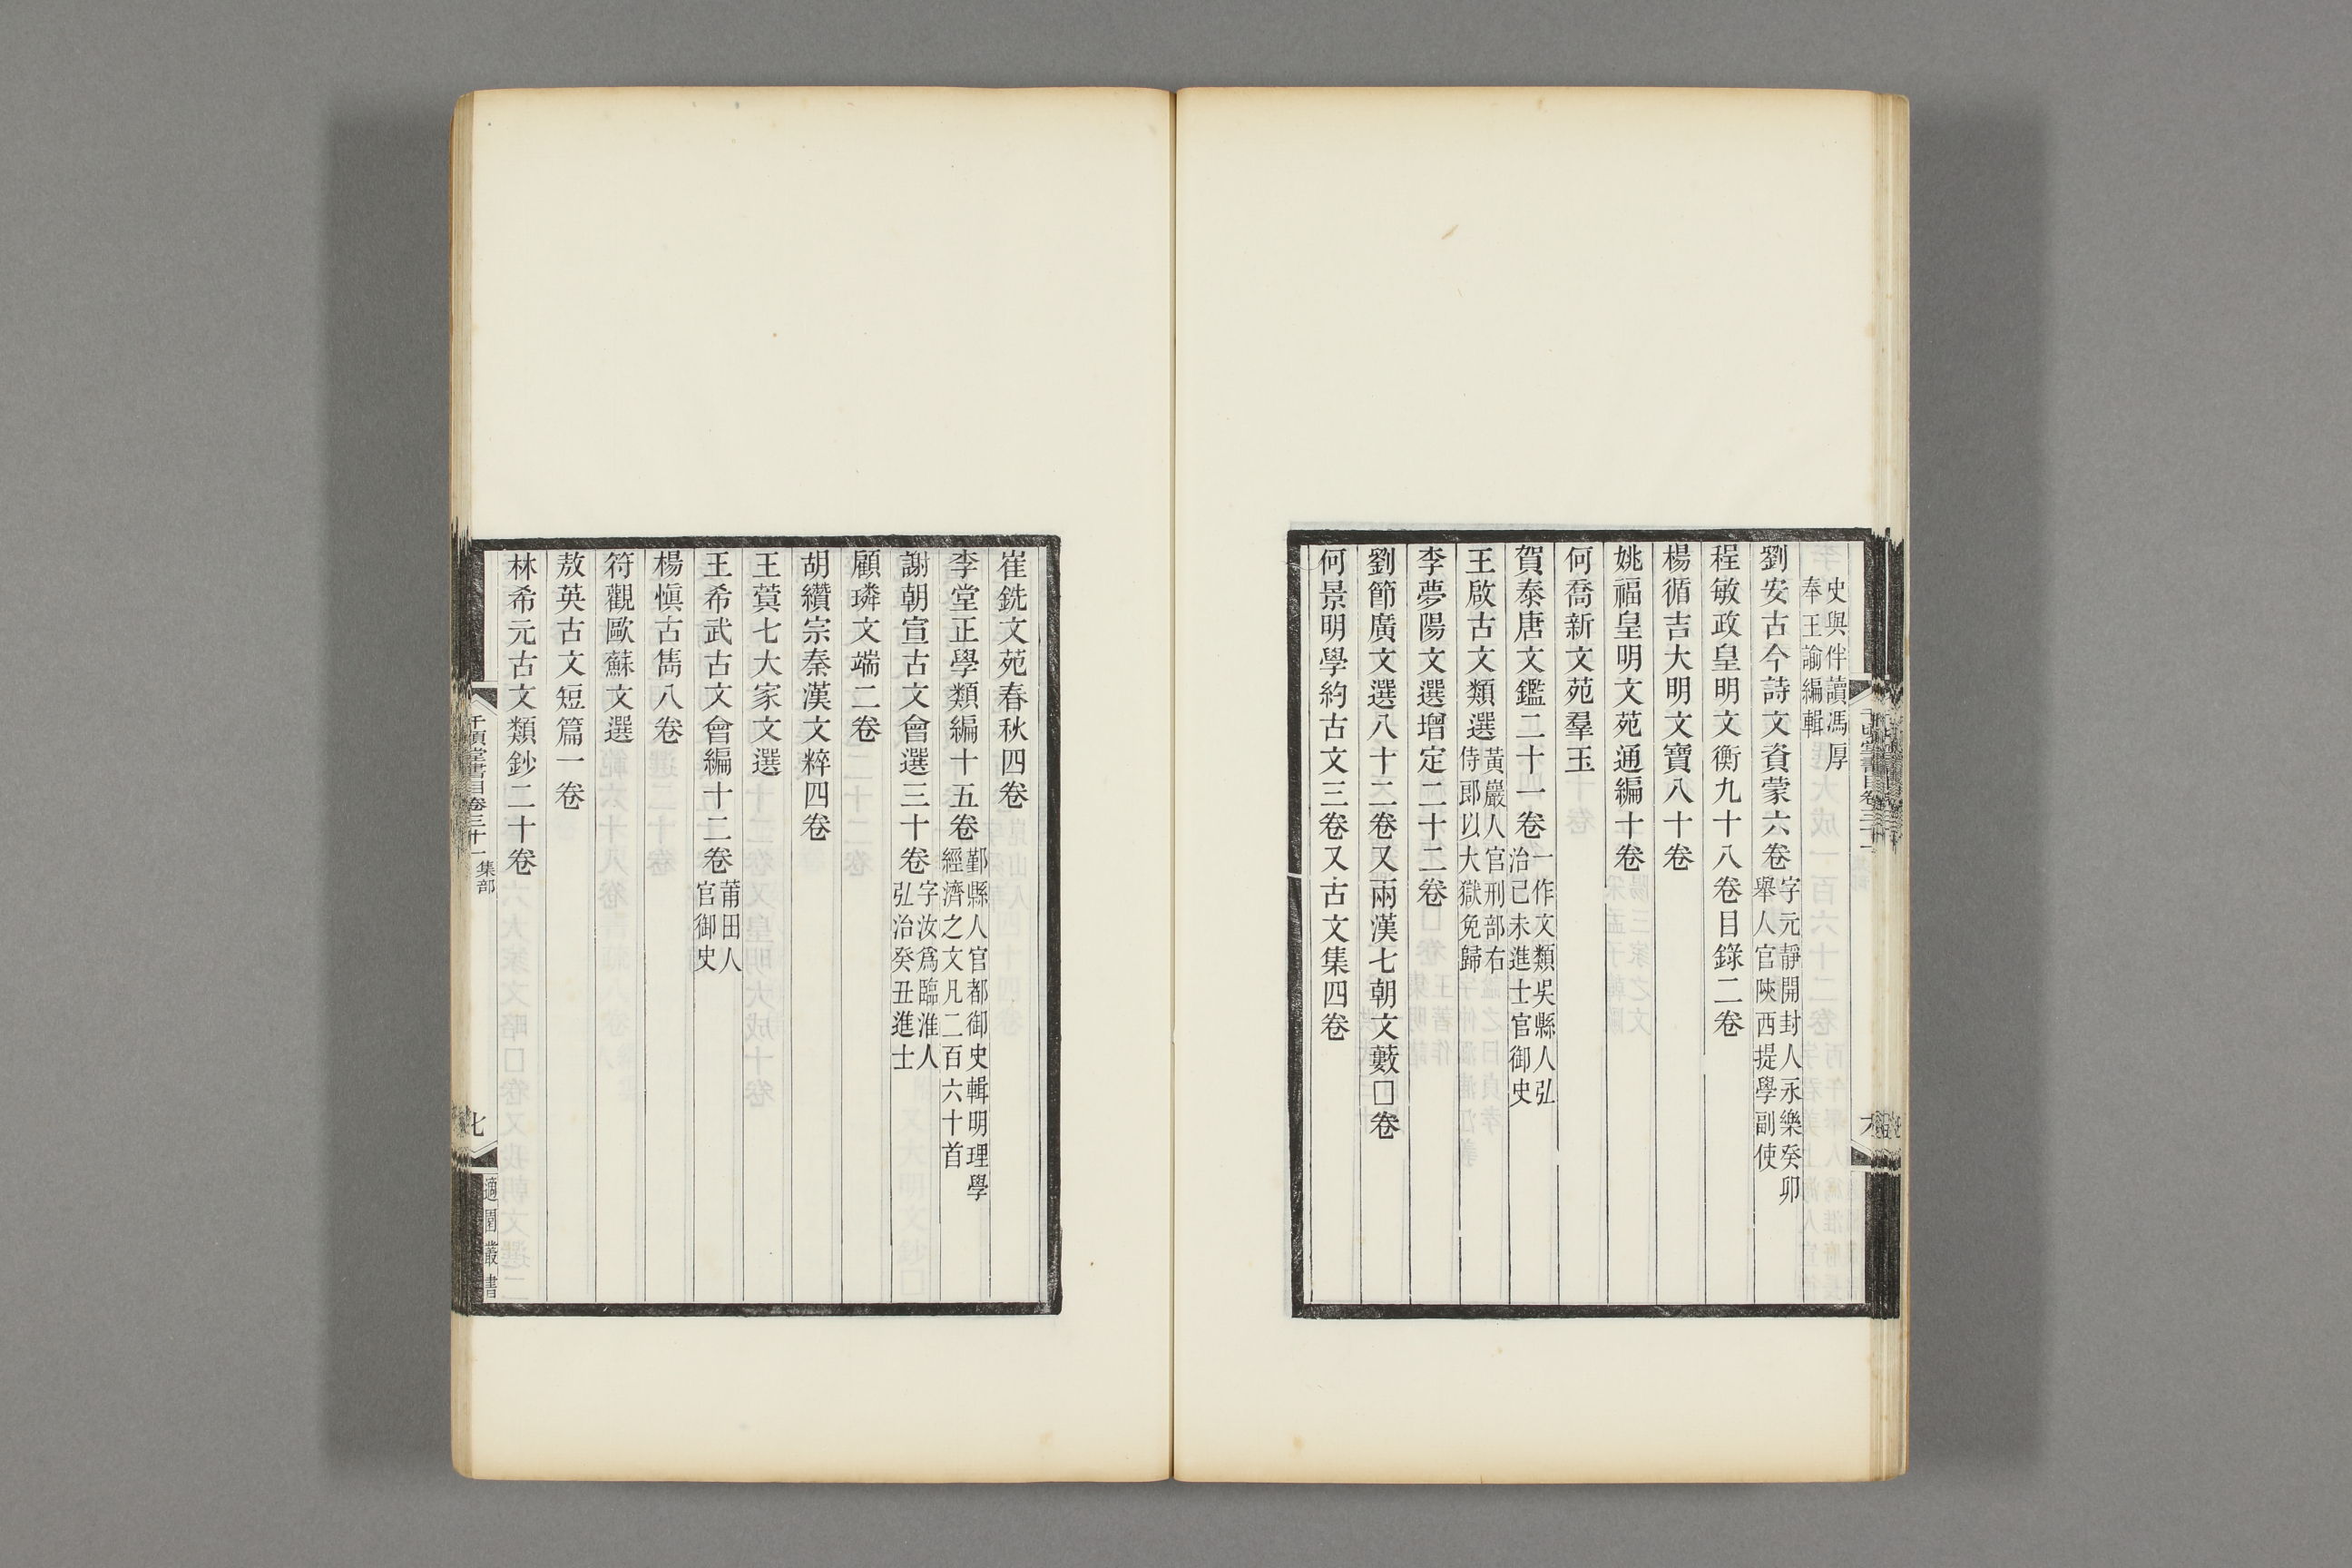 史與伴讀馮厚
奉王諭編輯
劉安古今詩文資蒙六卷字元靜開封人永樂癸卯
舉人官陝西提學副使
程敏政皇明文衡九十八卷目錄二卷
楊循吉大明文寶八十卷
姚福皇明文苑通編十卷
何喬新文苑羣玉
賀泰唐文鑑二十一卷一作文類吳縣人弘
治己未進士官御史
王啟古文類選黃巖人官刑部右
侍郎以大獄免歸
李夢陽文選增定二十二卷
劉節廣文選八十二卷又兩漢七朝文藪□卷
何景明學約古文三卷又古文集四卷
崔銑文苑春秋四卷
李堂正學類編十五卷鄞縣人官都御史輯明理學
經濟之文凡二百六十首
謝朝宣古文會選三十卷字汝爲臨淮人
弘治癸丑進士
顧璘文端二卷
胡纘宗秦漢文粹四卷
王蓂七大家文選
王希武古文會編十二卷莆田人
官御史
楊愼古雋八卷
符觀歐蘇文選
敖英古文短篇一卷
林希元古文類鈔二十卷
千頃堂書目卷三十一 集部
七
適園叢書